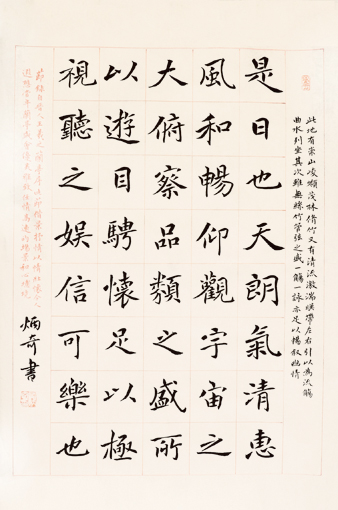 此地有崇山峻嶺茂林修竹又有清流激湍暎帶左右引以為流觴
曲水列坐其次雖無絲竹管弦之盛一觴一詠亦足以暢敘幽情
是日也天朗氣清惠
風和暢仰觀宇宙之
大俯察品類之盛所
以遊目騁懷足以極
視聽之娛信可樂也
炳奇書